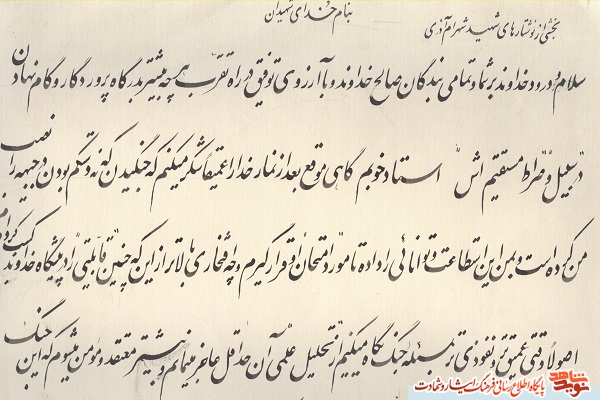 بنام خدای شهیدان
بخشی از نوشتارهای شهید شهرام آذری
سلام و درود خداوند بر شما و تمامی بندگان صالح خداوند و با آرزوی توفیق در راه تقرب هر چه بیشتر به درگاه پروردگار و گام نهادن
در سبیل و صراط مستقیم اش استاد خوبم گاهی موقع بعد از نماز خدا را عمیقاً شکر میکنم که جنگیدن که نه و سهم بودن در جبهه را نصیب
من کرده است و بمن این استطاعت و توانائی را داده تا مورد امتحان او قرار گیرم و چه افتخاری بالاتر از این که چنین قابلیتی را در پیشگاه خداوند کسب کرده‌ام
اصولاً وقتی عمیق‌تر و نفوذی‌تر به مسئله جنگ نگاه میکنیم از تحلیل علمی آن حداقل عاجز میمانم و بیشتر معتقد و مؤمن میشوم که این جنگ
نوید شاهد
پایگاه اطلاع رسانی فرهنگ ایثار و شهادت